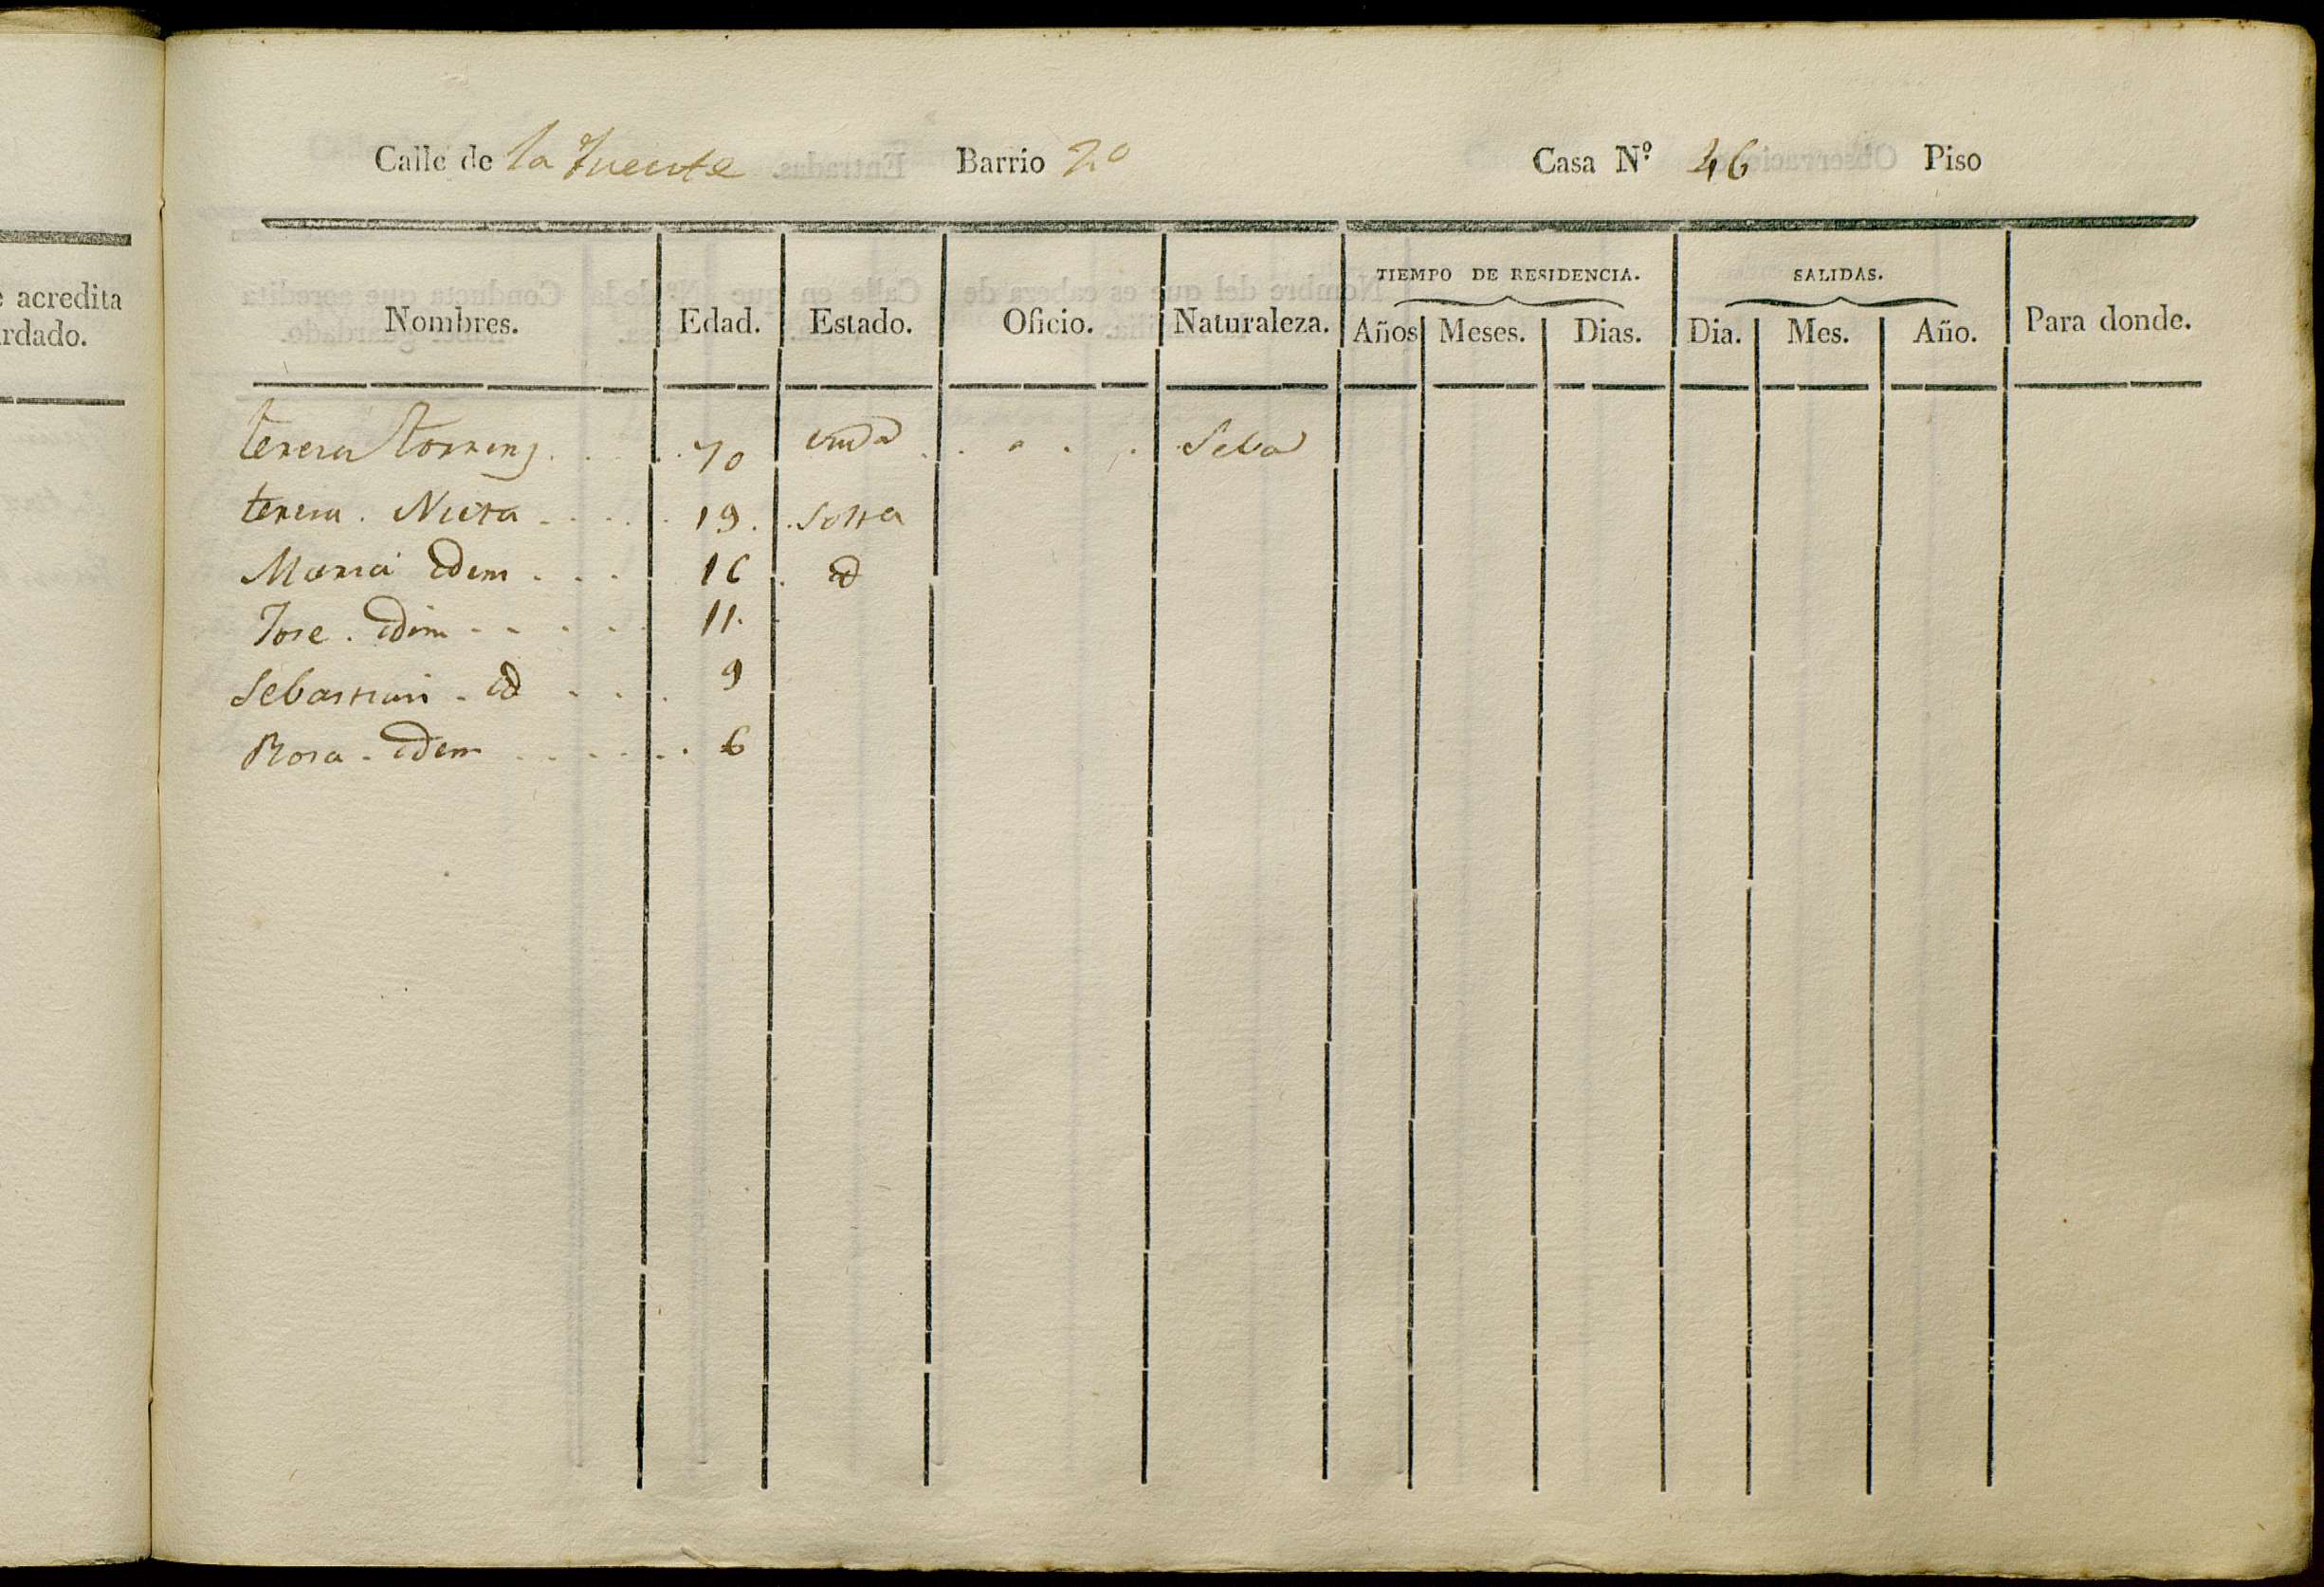 e acredita
rdado.
Calle de la Fuente Barrio 2º Casa Nº 46 Piso
TIEMPO DE RESIDENCIA. SALIDAS.
Nombres. Edad. Estado. Oficio. Naturaleza. Años Meses. Dias. Dia. Mes. Año. Para donde.
teresa torrens . . . 70 viuda . . . . Selva
teresa . Nieta . . . . . 19 . . Soltra
Maria idem . . . 16 . id
Jose . idem . . . . . 11.
Sebastian . id . . . 9
Rosa . idem . . . . . . 6